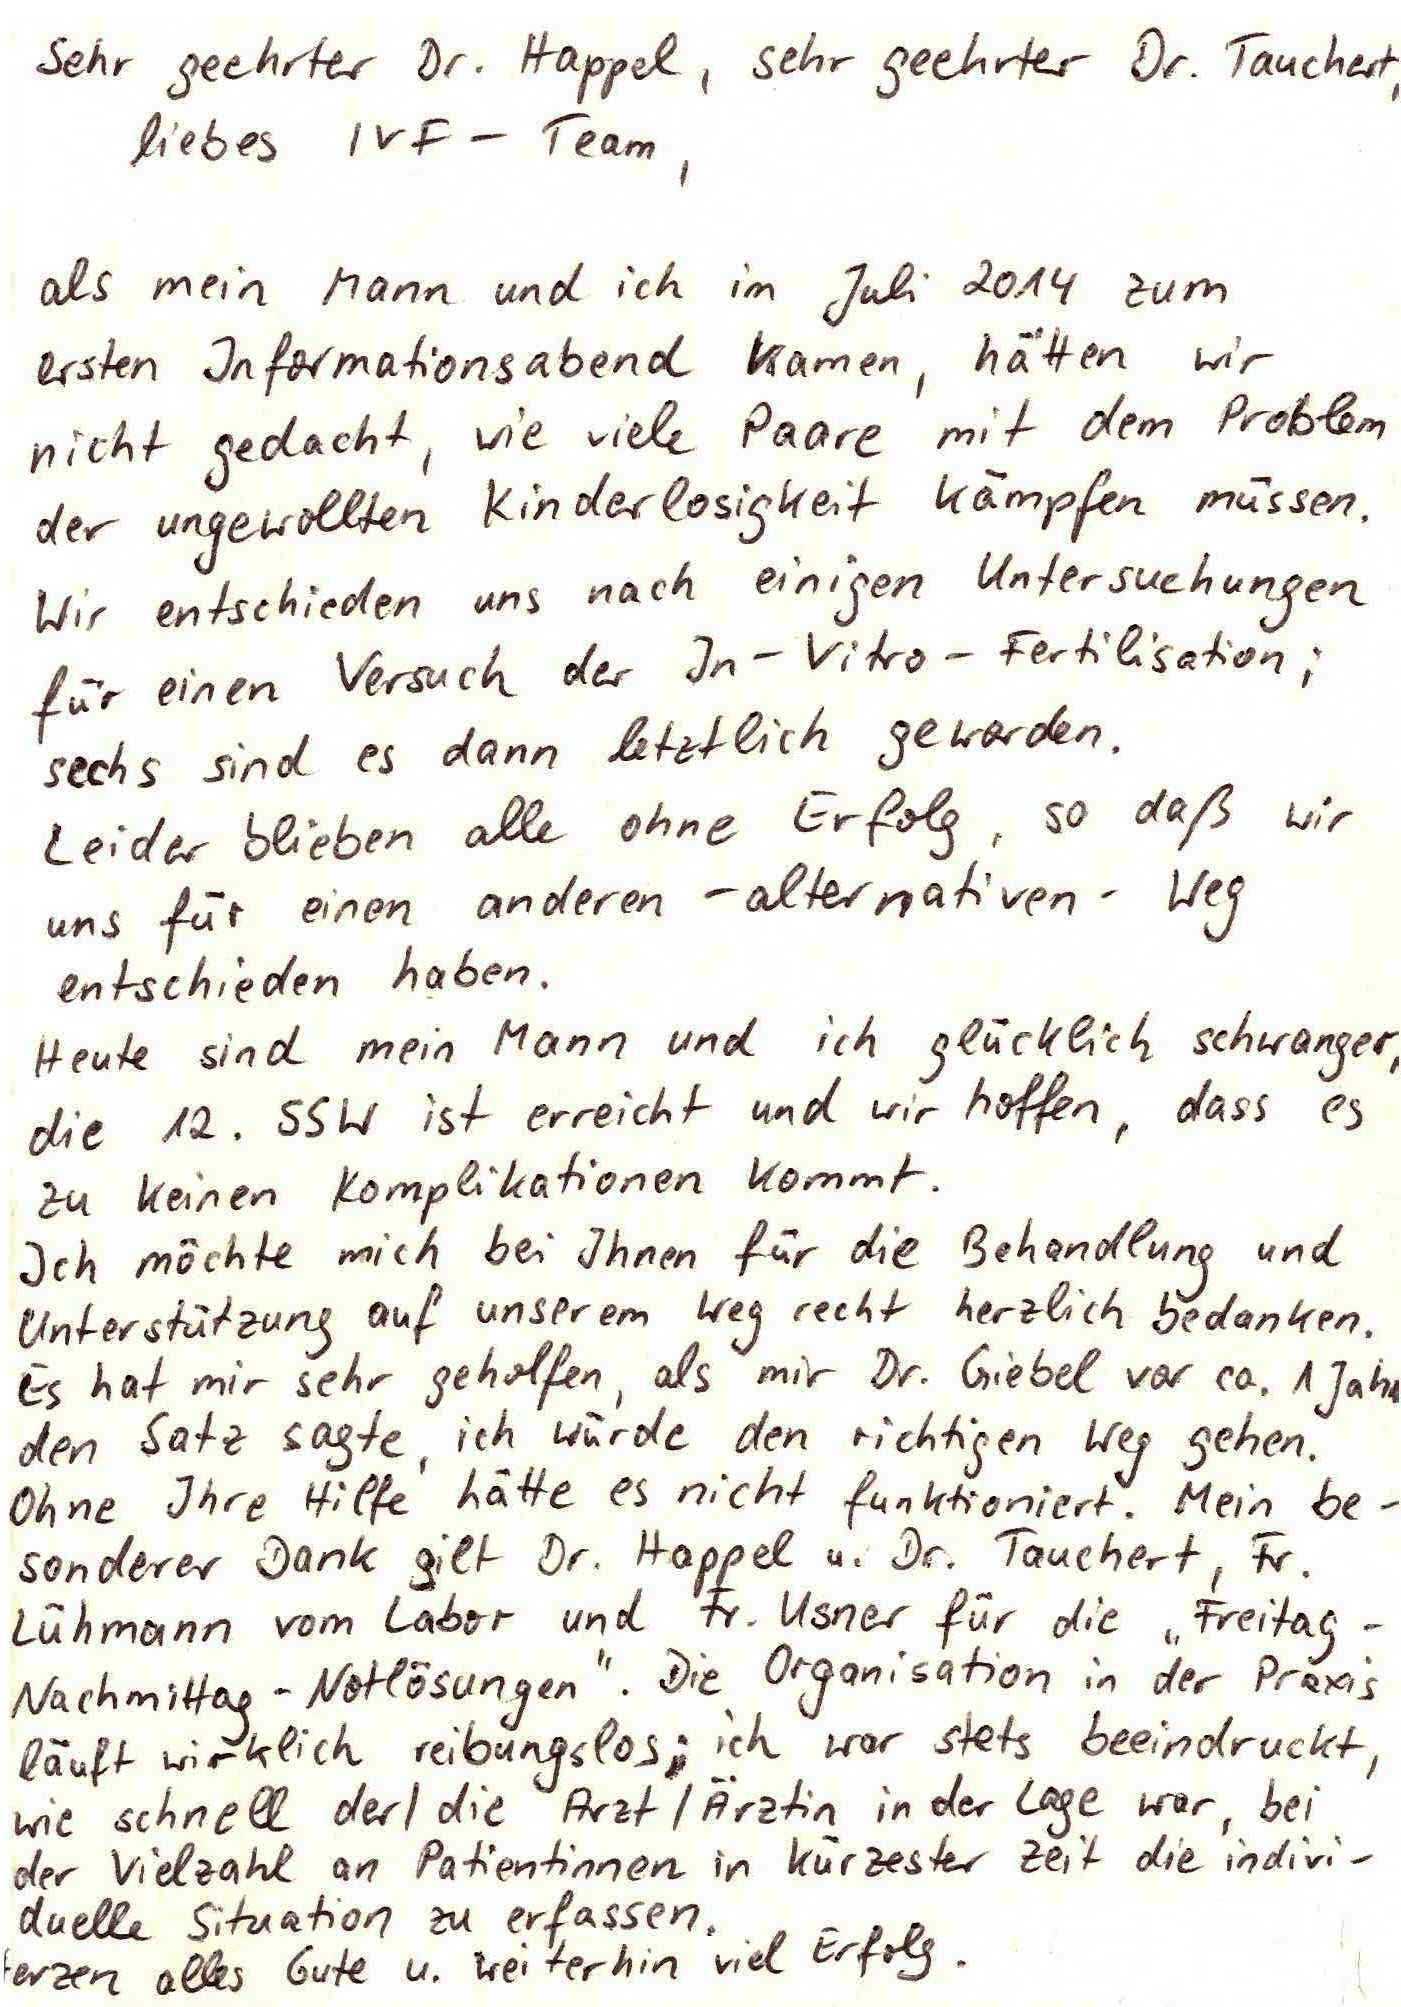 Sehr geehrter Dr. Happel, sehr geehrter Dr. Tauchert,
liebes IVF - Team,
als mein Mann und ich im Juli 2014 zum
ersten Informationsabend kamen, hätten wir
nicht gedacht, wie viele Paare mit dem Problem
der ungewollten Kinderlosigkeit kämpfen müssen.
Wir entschieden uns nach einigen Untersuchungen
für einen Versuch der In-Vitro-Fertilisation;
sechs sind es dann letztlich geworden.
Leider blieben alle ohne Erfolg, so daß wir
uns für einen anderen -alternativen- Weg
entschieden haben.
Heute sind mein Mann und ich glücklich schwanger,
die 12. SSW ist erreicht und wir hoffen, dass es
zu keinen Komplikationen kommt.
Ich möchte mich bei Ihnen für die Behandlung und
Unterstützung auf unserem Weg recht herzlich bedanken.
Es hat mir sehr geholfen, als mir Dr. Giebel vor ca. 1 Jahr
den Satz sagte, ich würde den richtigen Weg gehen.
Ohne Ihre Hilfe hätte es nicht funktioniert. Mein be-
sonderer Dank gilt Dr. Happel u. Dr. Tauchert, Fr.
Lühmann vom Labor und Fr. Usner für die „Freitag-
Nachmittag-Notlösungen". Die Organisation in der Praxis
läuft wirklich reibungslos; ich war stets beeindruckt,
wie schnell der/die Arzt/Ärztin in der Lage war, bei
der Vielzahl an Patientinnen in kürzester Zeit die indivi-
duelle Situation zu erfassen.
erzen alles Gute u. weiterhin viel Erfolg.